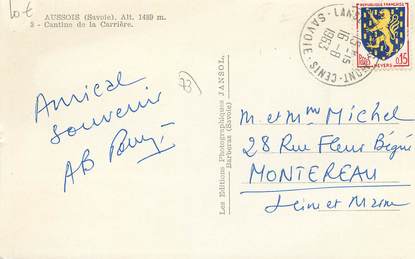 lot
AUSSOIS (Savoie). Alt. 1489 m.
3 - Cantine de la Carrière.
Amical
souvenir
AB
73
Les Editions Photographiques JANSOL,
Barberaz (Savoie)
LANS
MONT-CENIS
SAVOIE
16 - 8
1963
REPUBLIQUE FRANÇAISE
POSTES
0,15
NEVERS
M et Mme Michel
28 Rue Fleur Bégue
MONTEREAU
Seine et Marne